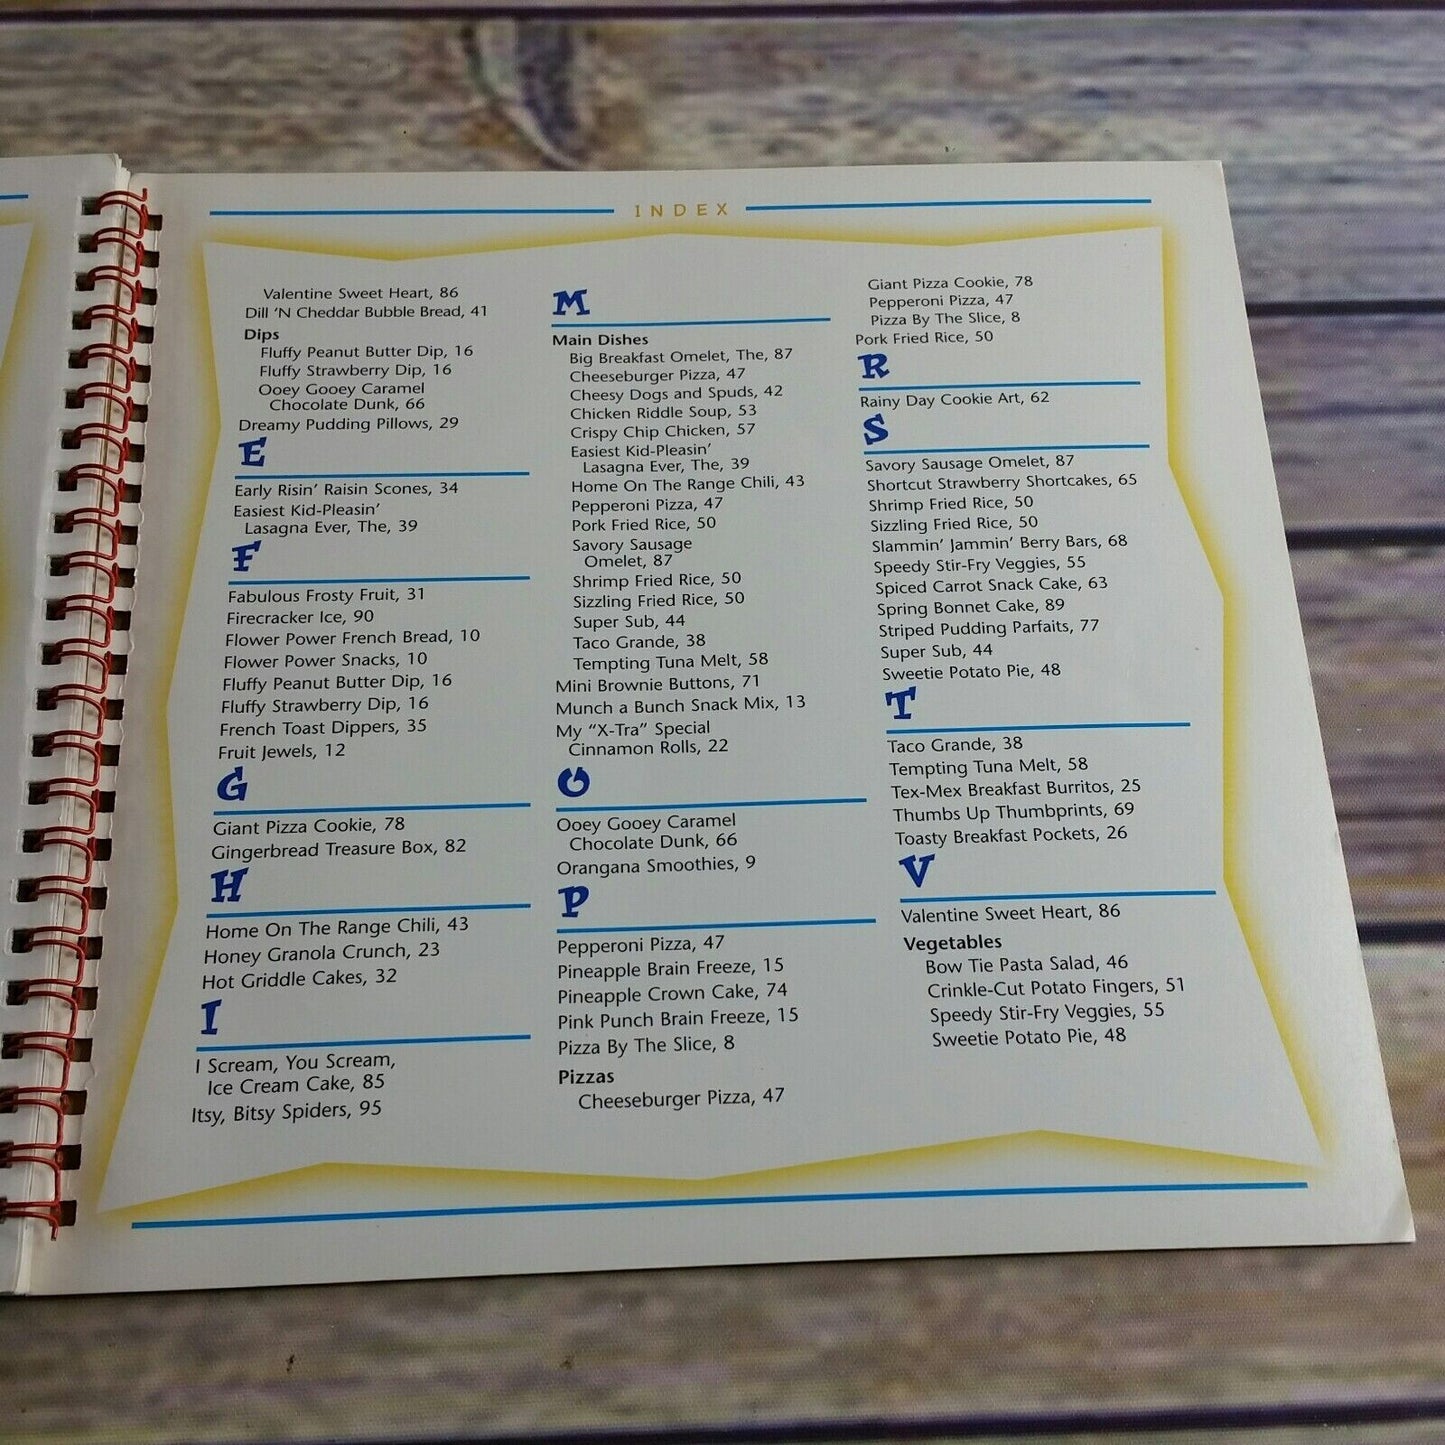 INDEX
Valentine Sweet Heart, 86
Dill ‘N Cheddar Bubble Bread, 41
Dips
Fluffy Peanut Butter Dip, 16
Fluffy Strawberry Dip, 16
Ooey Gooey Caramel
Chocolate Dunk, 66
Dreamy Pudding Pillows, 29
E
Early Risin’ Raisin Scones, 34
Easiest Kid-Pleasin’
Lasagna Ever, The, 39
F
Fabulous Frosty Fruit, 31
Firecracker Ice, 90
Flower Power French Bread, 10
Flower Power Snacks, 10
Fluffy Peanut Butter Dip, 16
Fluffy Strawberry Dip, 16
French Toast Dippers, 35
Fruit Jewels, 12
G
Giant Pizza Cookie, 78
Gingerbread Treasure Box, 82
H
Home On The Range Chili, 43
Honey Granola Crunch, 23
Hot Griddle Cakes, 32
I
I Scream, You Scream,
Ice Cream Cake, 85
Itsy, Bitsy Spiders, 95
M
Main Dishes
Big Breakfast Omelet, The, 87
Cheeseburger Pizza, 47
Cheesy Dogs and Spuds, 42
Chicken Riddle Soup, 53
Crispy Chip Chicken, 57
Easiest Kid-Pleasin’
Lasagna Ever, The, 39
Home On The Range Chili, 43
Pepperoni Pizza, 47
Pork Fried Rice, 50
Savory Sausage
Omelet, 87
Shrimp Fried Rice, 50
Sizzling Fried Rice, 50
Super Sub, 44
Taco Grande, 38
Tempting Tuna Melt, 58
Mini Brownie Buttons, 71
Munch a Bunch Snack Mix, 13
My “X-Tra” Special
Cinnamon Rolls, 22
O
Ooey Gooey Caramel
Chocolate Dunk, 66
Orangana Smoothies, 9
P
Pepperoni Pizza, 47
Pineapple Brain Freeze, 15
Pineapple Crown Cake, 74
Pink Punch Brain Freeze, 15
Pizza By The Slice, 8
Pizzas
Cheeseburger Pizza, 47
Giant Pizza Cookie, 78
Pepperoni Pizza, 47
Pizza By The Slice, 8
Pork Fried Rice, 50
R
Rainy Day Cookie Art, 62
S
Savory Sausage Omelet, 87
Shortcut Strawberry Shortcakes, 65
Shrimp Fried Rice, 50
Sizzling Fried Rice, 50
Slammin’ Jammin’ Berry Bars, 68
Speedy Stir-Fry Veggies, 55
Spiced Carrot Snack Cake, 63
Spring Bonnet Cake, 89
Striped Pudding Parfaits, 77
Super Sub, 44
Sweetie Potato Pie, 48
T
Taco Grande, 38
Tempting Tuna Melt, 58
Tex-Mex Breakfast Burritos, 25
Thumbs Up Thumbprints, 69
Toasty Breakfast Pockets, 26
V
Valentine Sweet Heart, 86
Vegetables
Bow Tie Pasta Salad, 46
Crinkle-Cut Potato Fingers, 51
Speedy Stir-Fry Veggies, 55
Sweetie Potato Pie, 48